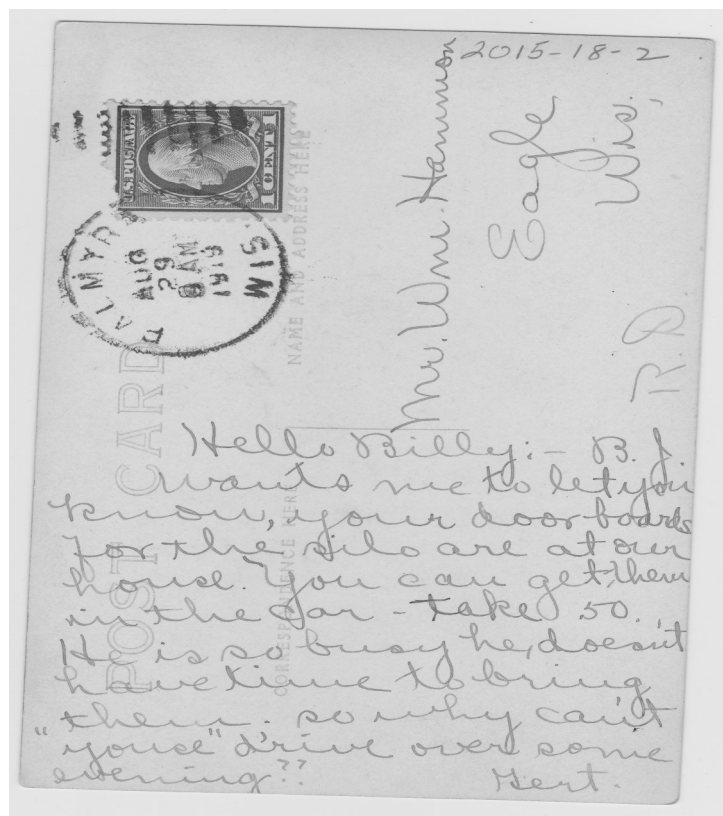 2015-18-2
U.S. POSTAGE
1 CENT 1
PALMYRA
WIS
AUG
29
8 AM
1919
POST CARD
NAME AND ADDRESS HERE
CORRESPONDENCE HERE
Mr. Wm. Hammon
Eagle
Wis.
R.D
Hello Billy:- B.J
wants me to let you
know, your door boards
for the silo are at our
house. You can get them
in the car - take 50.
He is so busy he doesn't
have time to bring
them. so why can't
"youse" drive over some
evening??
Gert.